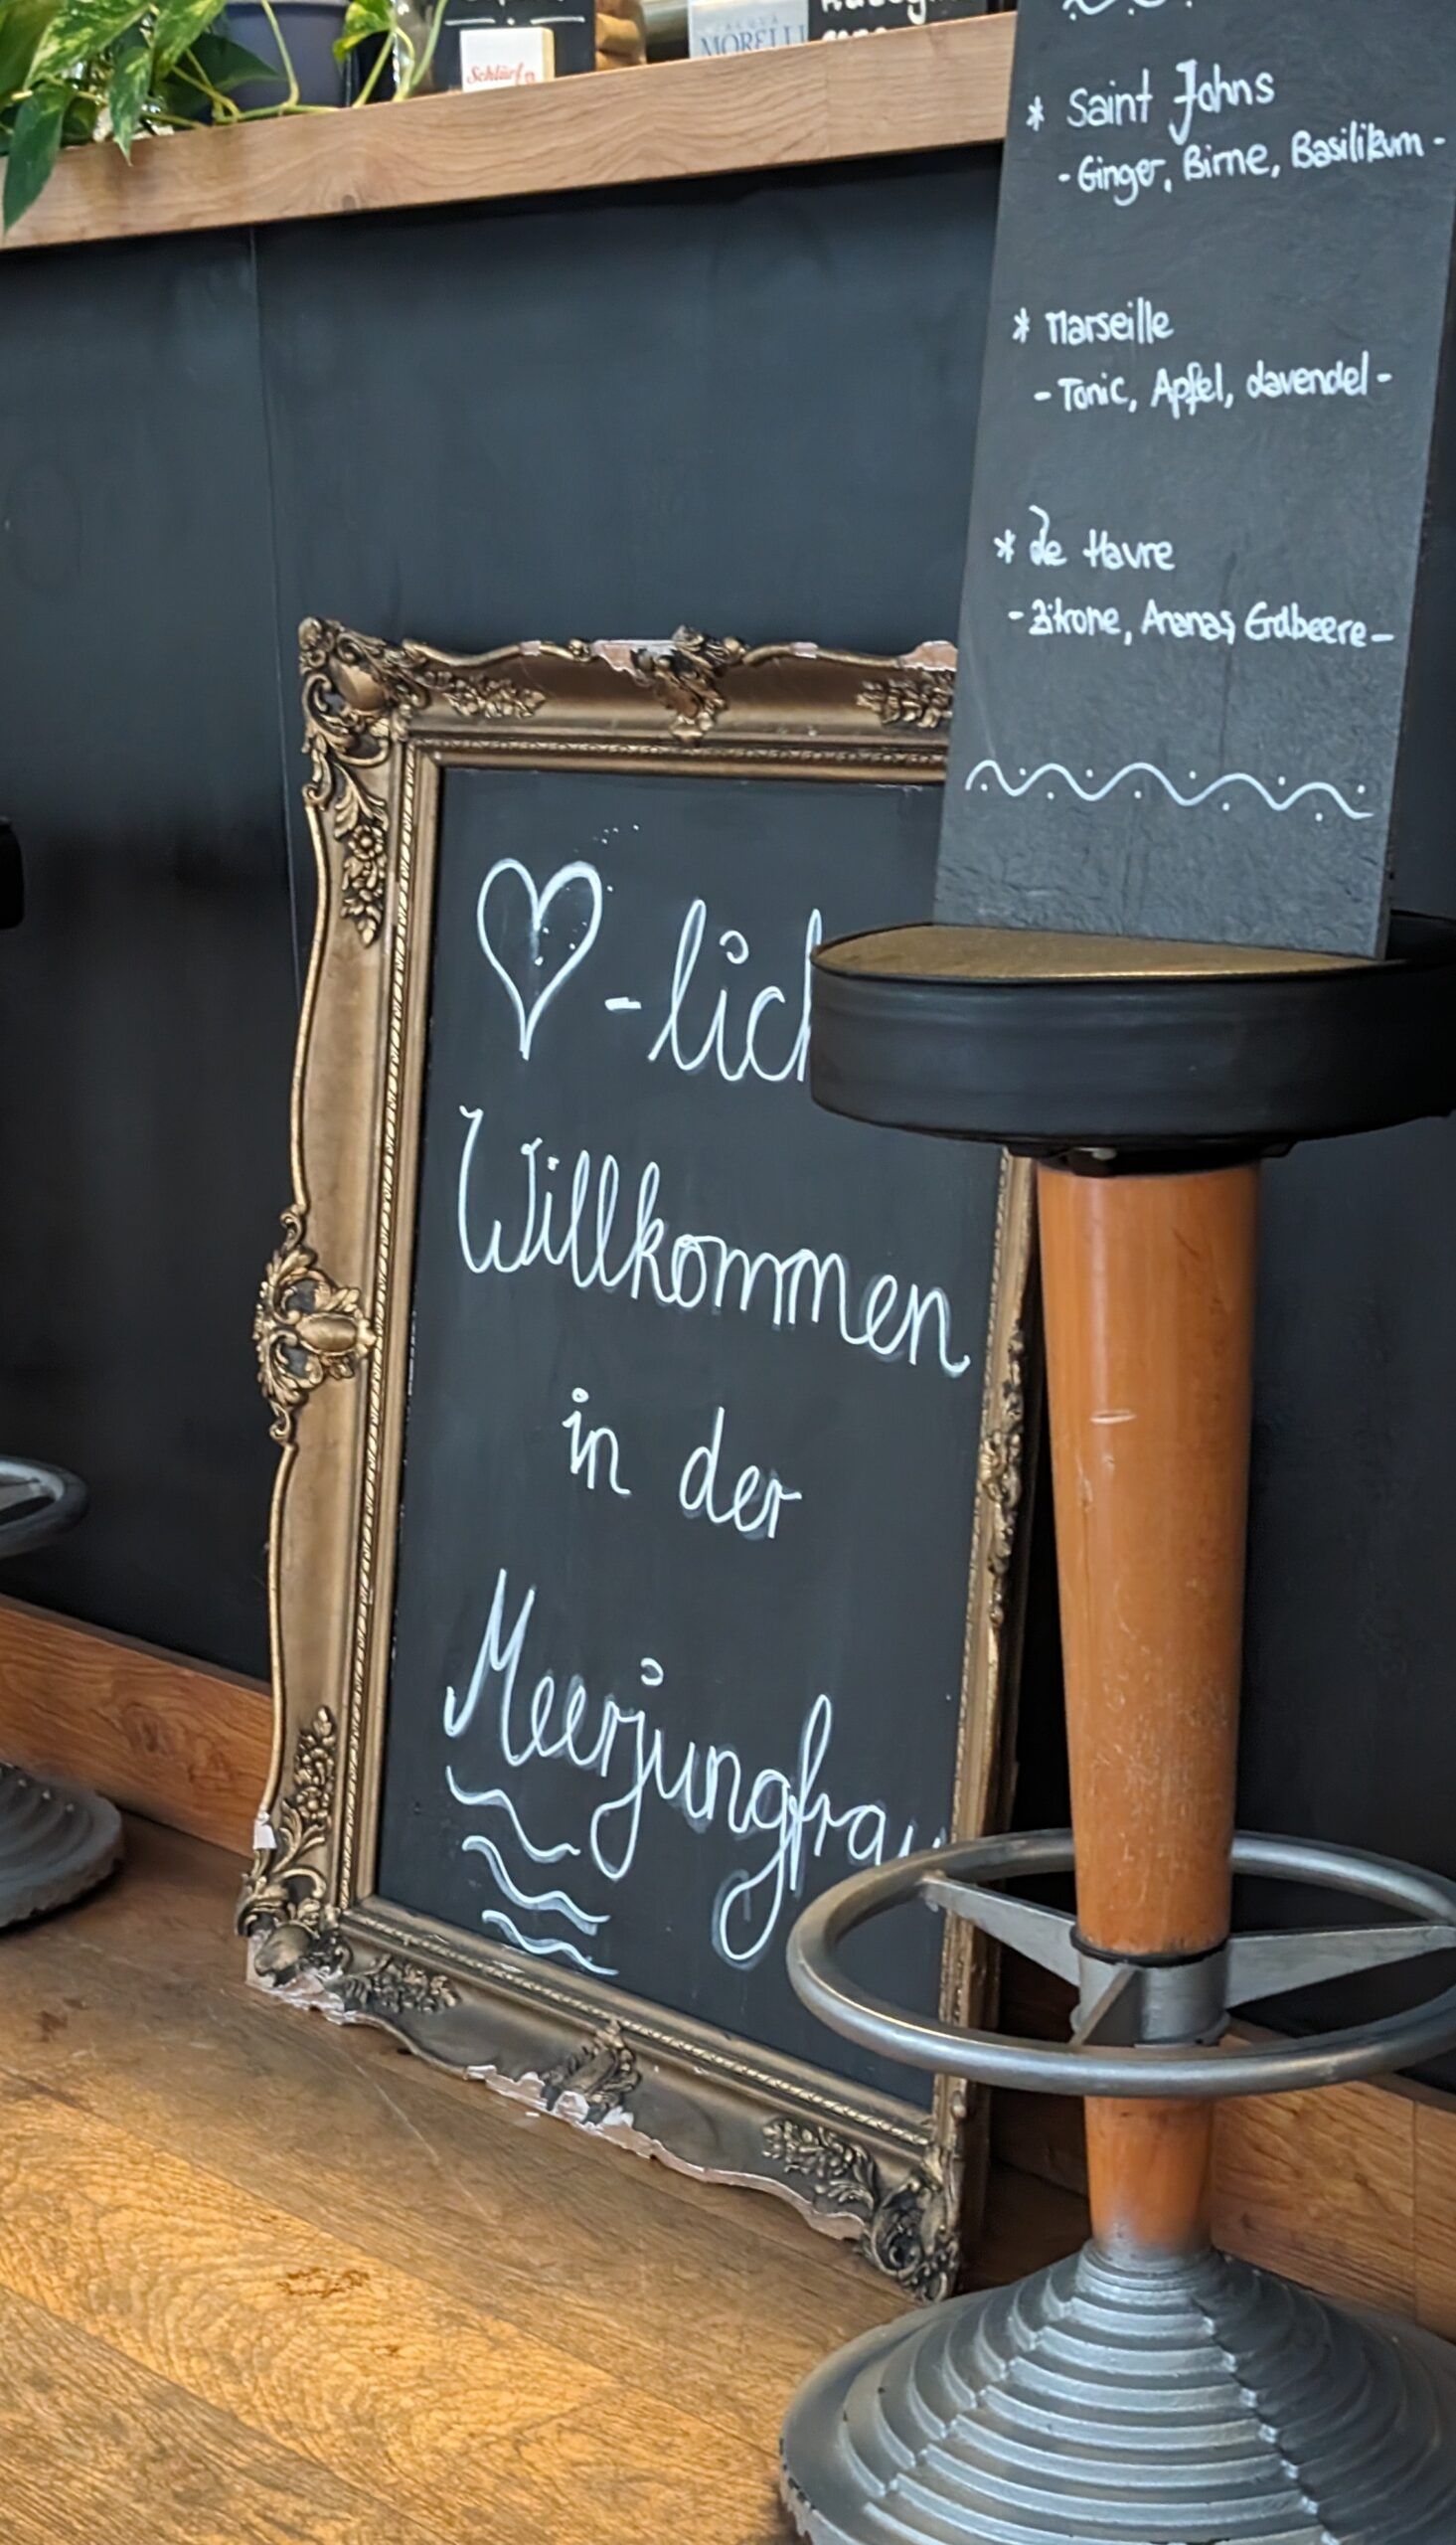 Schlürf
MORELLI
* Saint Johns
- Ginger, Birne, Basilikum -
* Marseille
- Tonic, Apfel, Lavendel -
* Le Havre
- Zitrone, Ananas, Erdbeere -
♡-lich
Willkommen
in der
Meerjungfrau